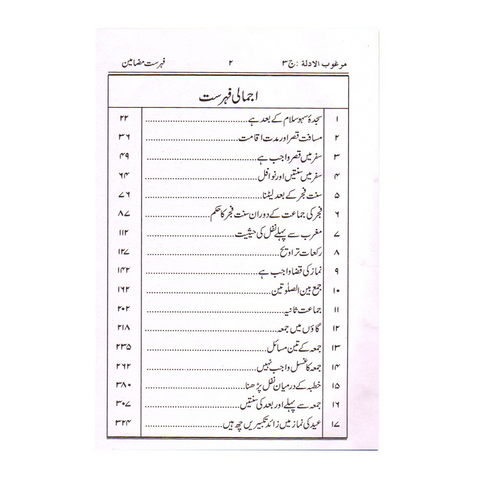 مرغوب الادلة : ج ۳ ۲ فہرست مضامین
اجمالی فہرست
۱ سجدۂ سہو سلام کے بعد ہے ۲۲
۲ مسافت قصر اور مدت اقامت ۳۶
۳ سفر میں قصر واجب ہے ۴۹
۴ سفر میں سنتیں اور نوافل ۶۴
۵ سنت فجر کے بعد لیٹنا ۷۶
۶ فجر کی جماعت کے دوران سنت فجر کا حکم ۸۷
۷ مغرب سے پہلے نفل کی حیثیت ۱۱۲
۸ رکعات تراویح ۱۲۷
۹ نماز کی قضا واجب ہے ۱۴۲
۱۰ جمع بین الصلوتین ۱۶۲
۱۱ جماعت ثانیہ ۲۰۲
۱۲ گاؤں میں جمعہ ۲۱۸
۱۳ جمعہ کے تین مسائل ۲۳۵
۱۴ جمعہ کا غسل واجب نہیں ۲۶۲
۱۵ خطبہ کے درمیان نفل پڑھنا ۳۸۰
۱۶ جمعہ سے پہلے اور بعد کی سنتیں ۳۰۷
۱۷ عید کی نماز میں زائد تکبیریں چھ ہیں ۳۲۴